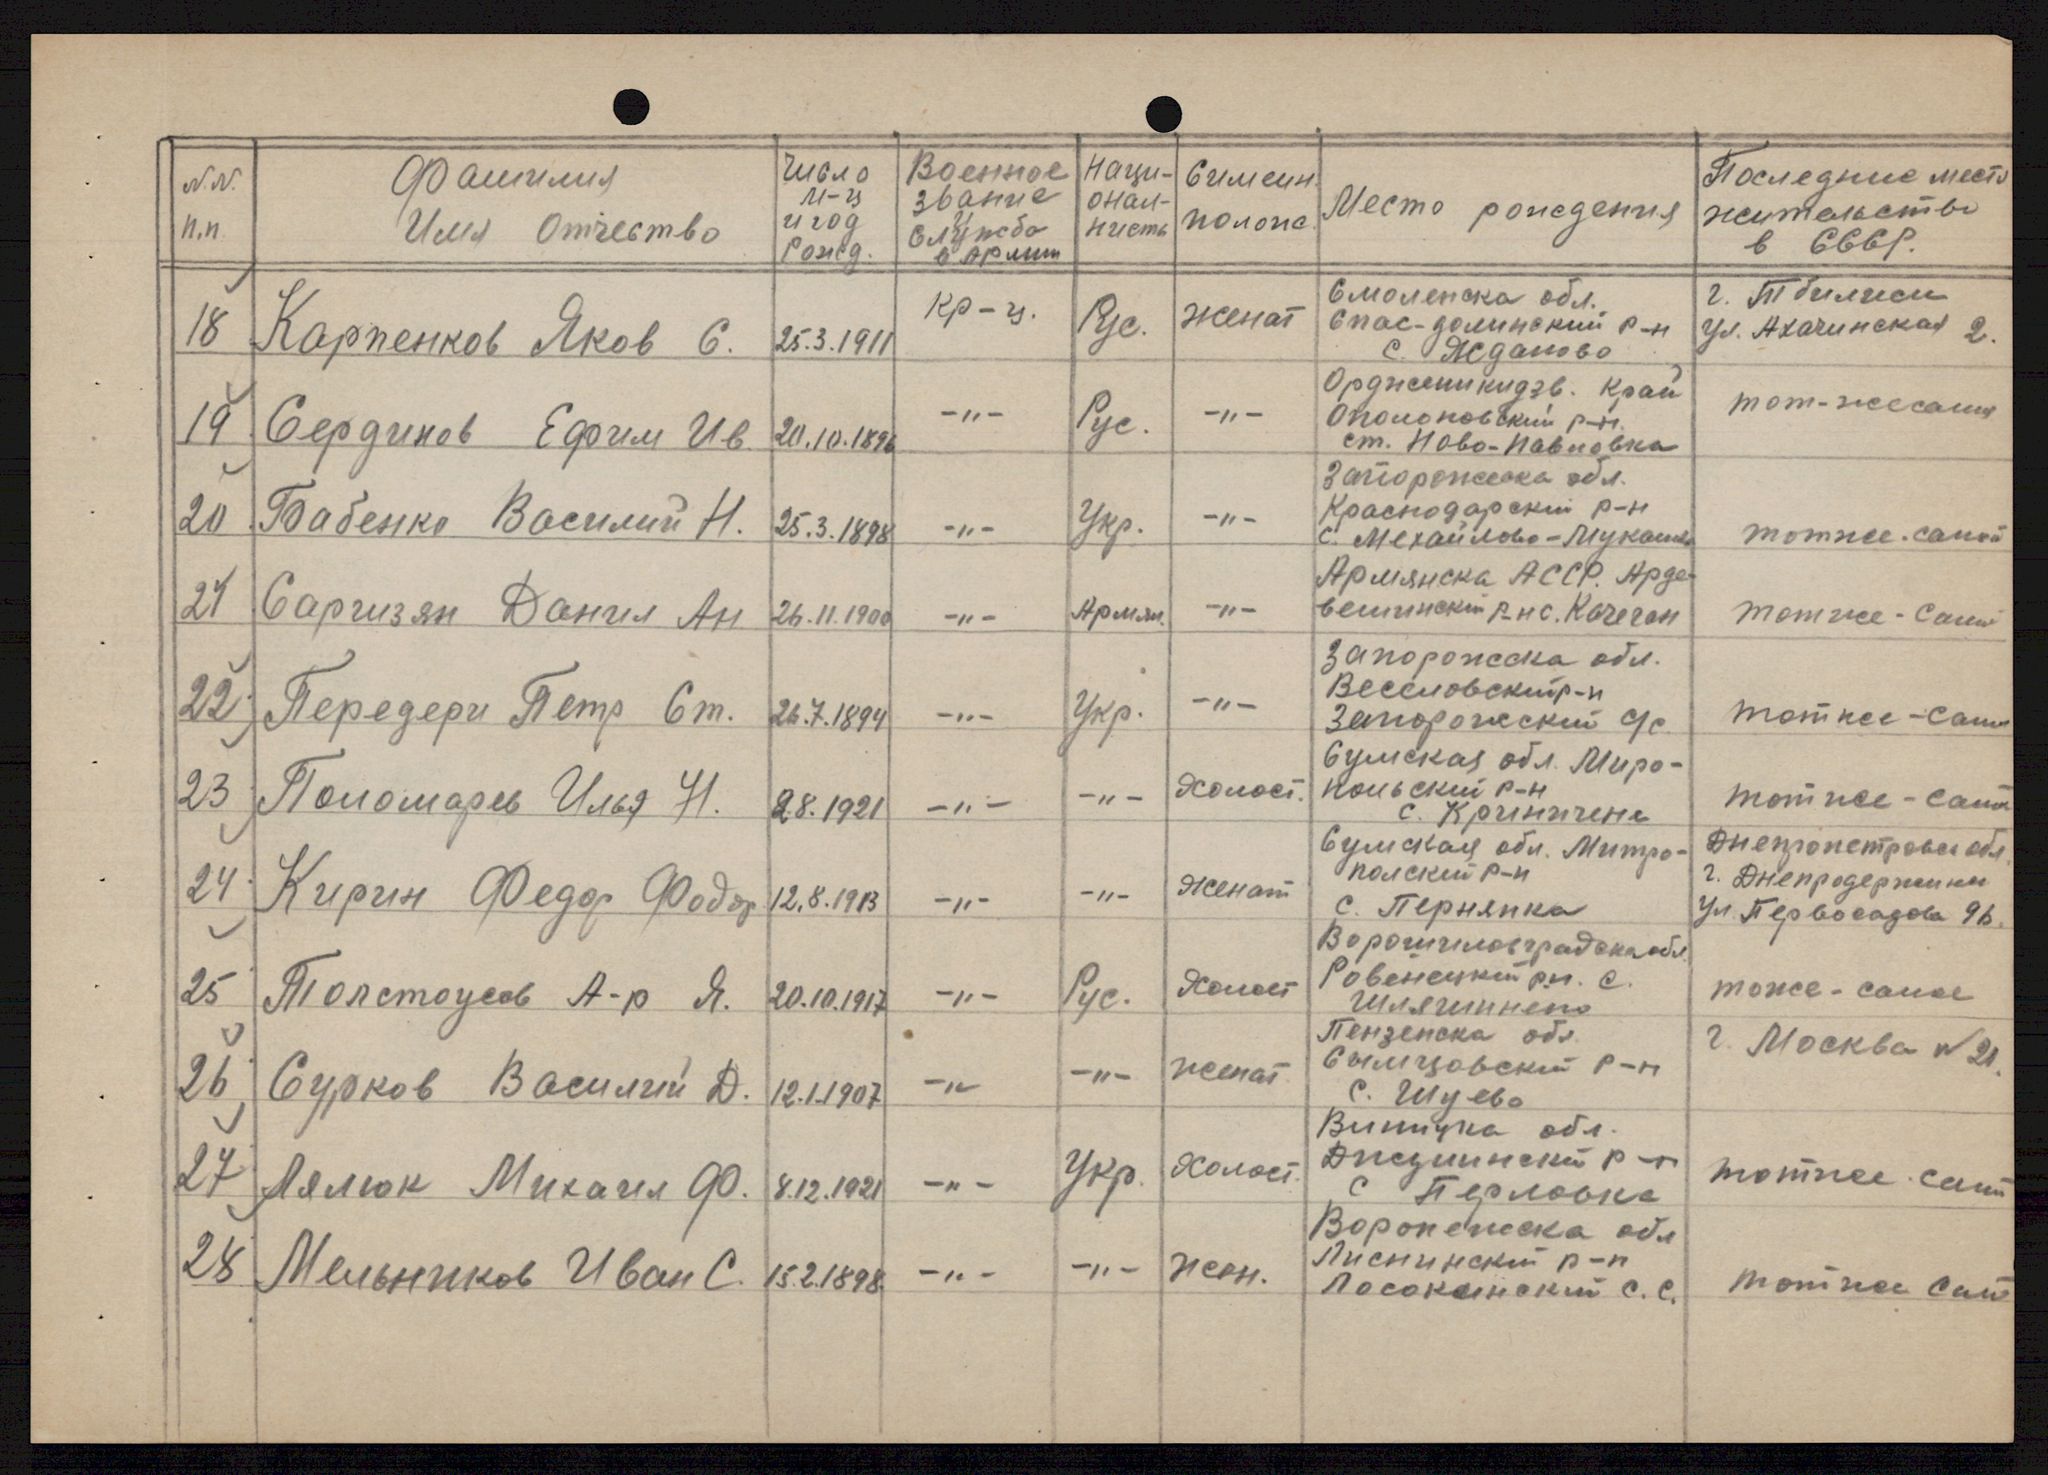 N.N. п.п
Фамилия Имя Отчество
Число м-ц и год рожд.
Военное звание Служба в армии
Наци-онал-ность
Симеин. полож.
Место рождения
Последние место жительство в СССР.
18 Карпенков Яков С. 25.3.1911 Кр-ц. Рус. женат
Смоленска обл.
Спас-долинский р-н
с. Жданово
г. Тбилиси
ул. Ахачинская 2.
19 Сердинов Ефим Ив. 20.10.1896 -"- Рус. -"-
Орджоникидзв. край
Ополоновский р-н.
ст. Ново-Павловка
тот-жесамы
20 Бабенко Василий Н. 25.3.1898 -"- Укр. -"-
Запорожска обл.
Краснодарский р-н
с. Мехайлово-Мукашево
тотже-самой
21 Саргизян Данил Ан 26.11.1900 -"- Армян. -"-
Армянска АССР. Арде-
вешинский р-н с. Качеган
тотже-самы
22 Передери Петр Ст. 26.7.1894 -"- Укр. -"-
Запорожска обл.
Веселовский р-н
Запорожский с/с
тотже-самы
23 Пономарев Илья Н. 28.1921 -"- -"- Холост.
Сумская обл. Миро-
польский р-н
с. Криничене
тотже-самы
24 Кирин Федор Фодор 12.8.1913 -"- -"- Женат
Сумская обл. Митро-
полский р-н
с. Пернянка
Днепропетровск обл.
г. Днепродержинск
ул. Первосадова 96.
25 Толстоусов А-р Я. 20.10.1917 -"- Рус. Холост
Ворошиловградска обл.
Ровенецкий р.н. с.
Шлягиннено
тоже-самое
26 Сурков Василий Д. 12.1.1907 -"- -"- женат
Пензенска обл.
Сымцовский р-н
с. Шуево
г. Москва N 21.
27 Лялюк Михаил Ф. 8.12.1921 -"- Укр. Холост.
Виницка обл.
Джулинский р-н
с Перловка
тотже-самы
28 Мельников Иван С. 15.2.1898 -"- -"- жен.
Воронежска обл
Лиснинский р-н
Лосокинский с.с.
тотже сам